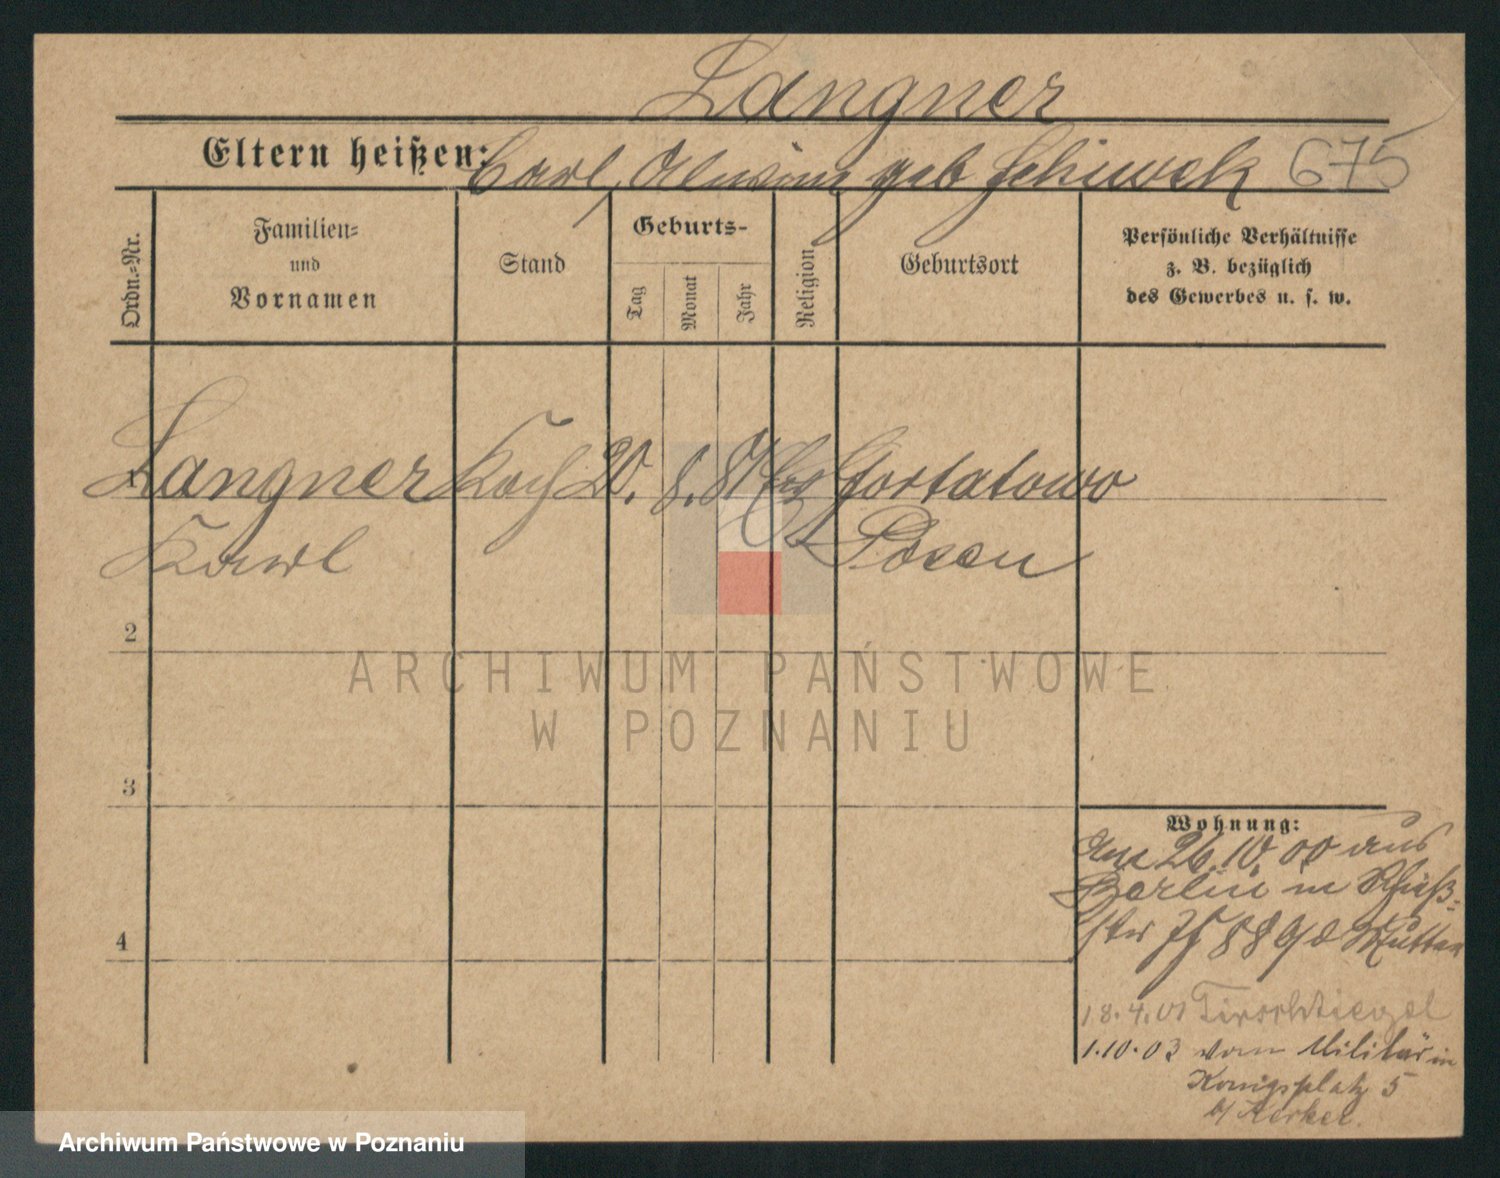 Langner
Eltern heißen: Carl, geb 675
Ordn.=Nr.
Familien=
und
Vornamen
Stand
Geburts-
Tag
Monat
Jahr
Religion
Geburtsort
Persönliche Verhältnisse
z. B. bezüglich
des Gewerbes u. s. w.
1 Langner Koch 20. 8. 81 Gortatowo
Karl Posen
2
3
4
ARCHIWUM PAŃSTWOWE
W POZNANIU
Wohnung:
Am 26.10.00 aus
Berlin in
88 Mutter
18.4.01 Tirschtiegel
1.10.03 vom Militär in
Königsplatz 5
b/
Archiwum Państwowe w Poznaniu